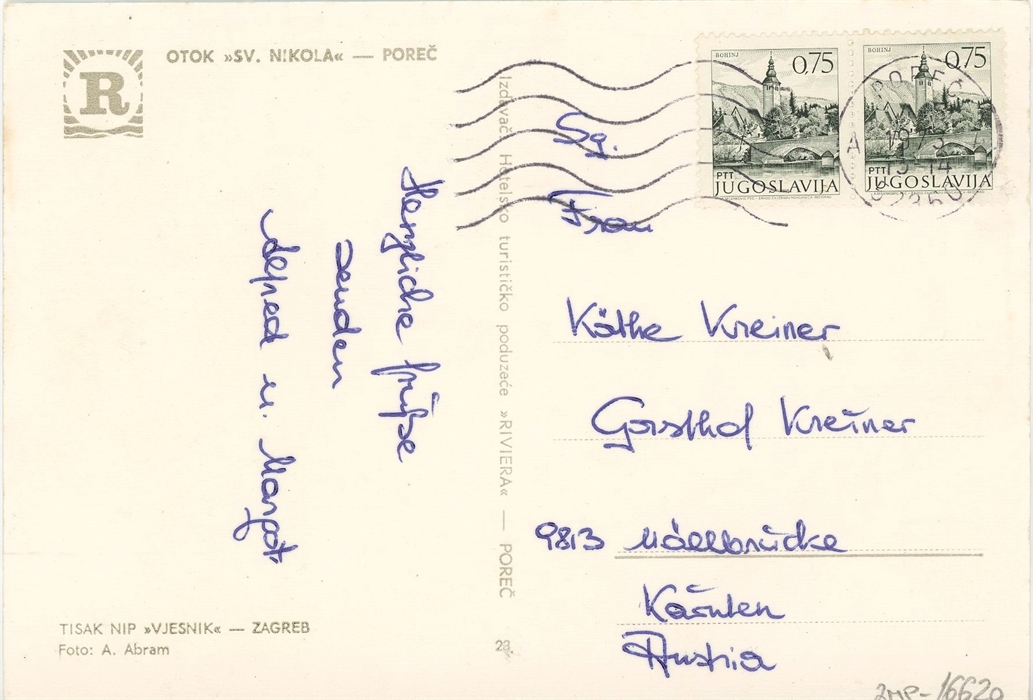 R
OTOK »SV. NIKOLA« — POREČ
Herzliche Grüße
senden
Alfred u. Margot
TISAK NIP »VJESNIK« — ZAGREB
Foto: A. Abram
Izdavač: Hotelsko turističko poduzeće »RIVIERA« — POREČ
23.
BOHINJ
0,75
PTT
JUGOSLAVIJA
BOHINJ
0,75
PTT
JUGOSLAVIJA
POREČ
A
Sg.
Frau
Käthe Kreiner
Gasthof Kreiner
9813 Möllbrücke
Kärnten
Austria
2MP-16620